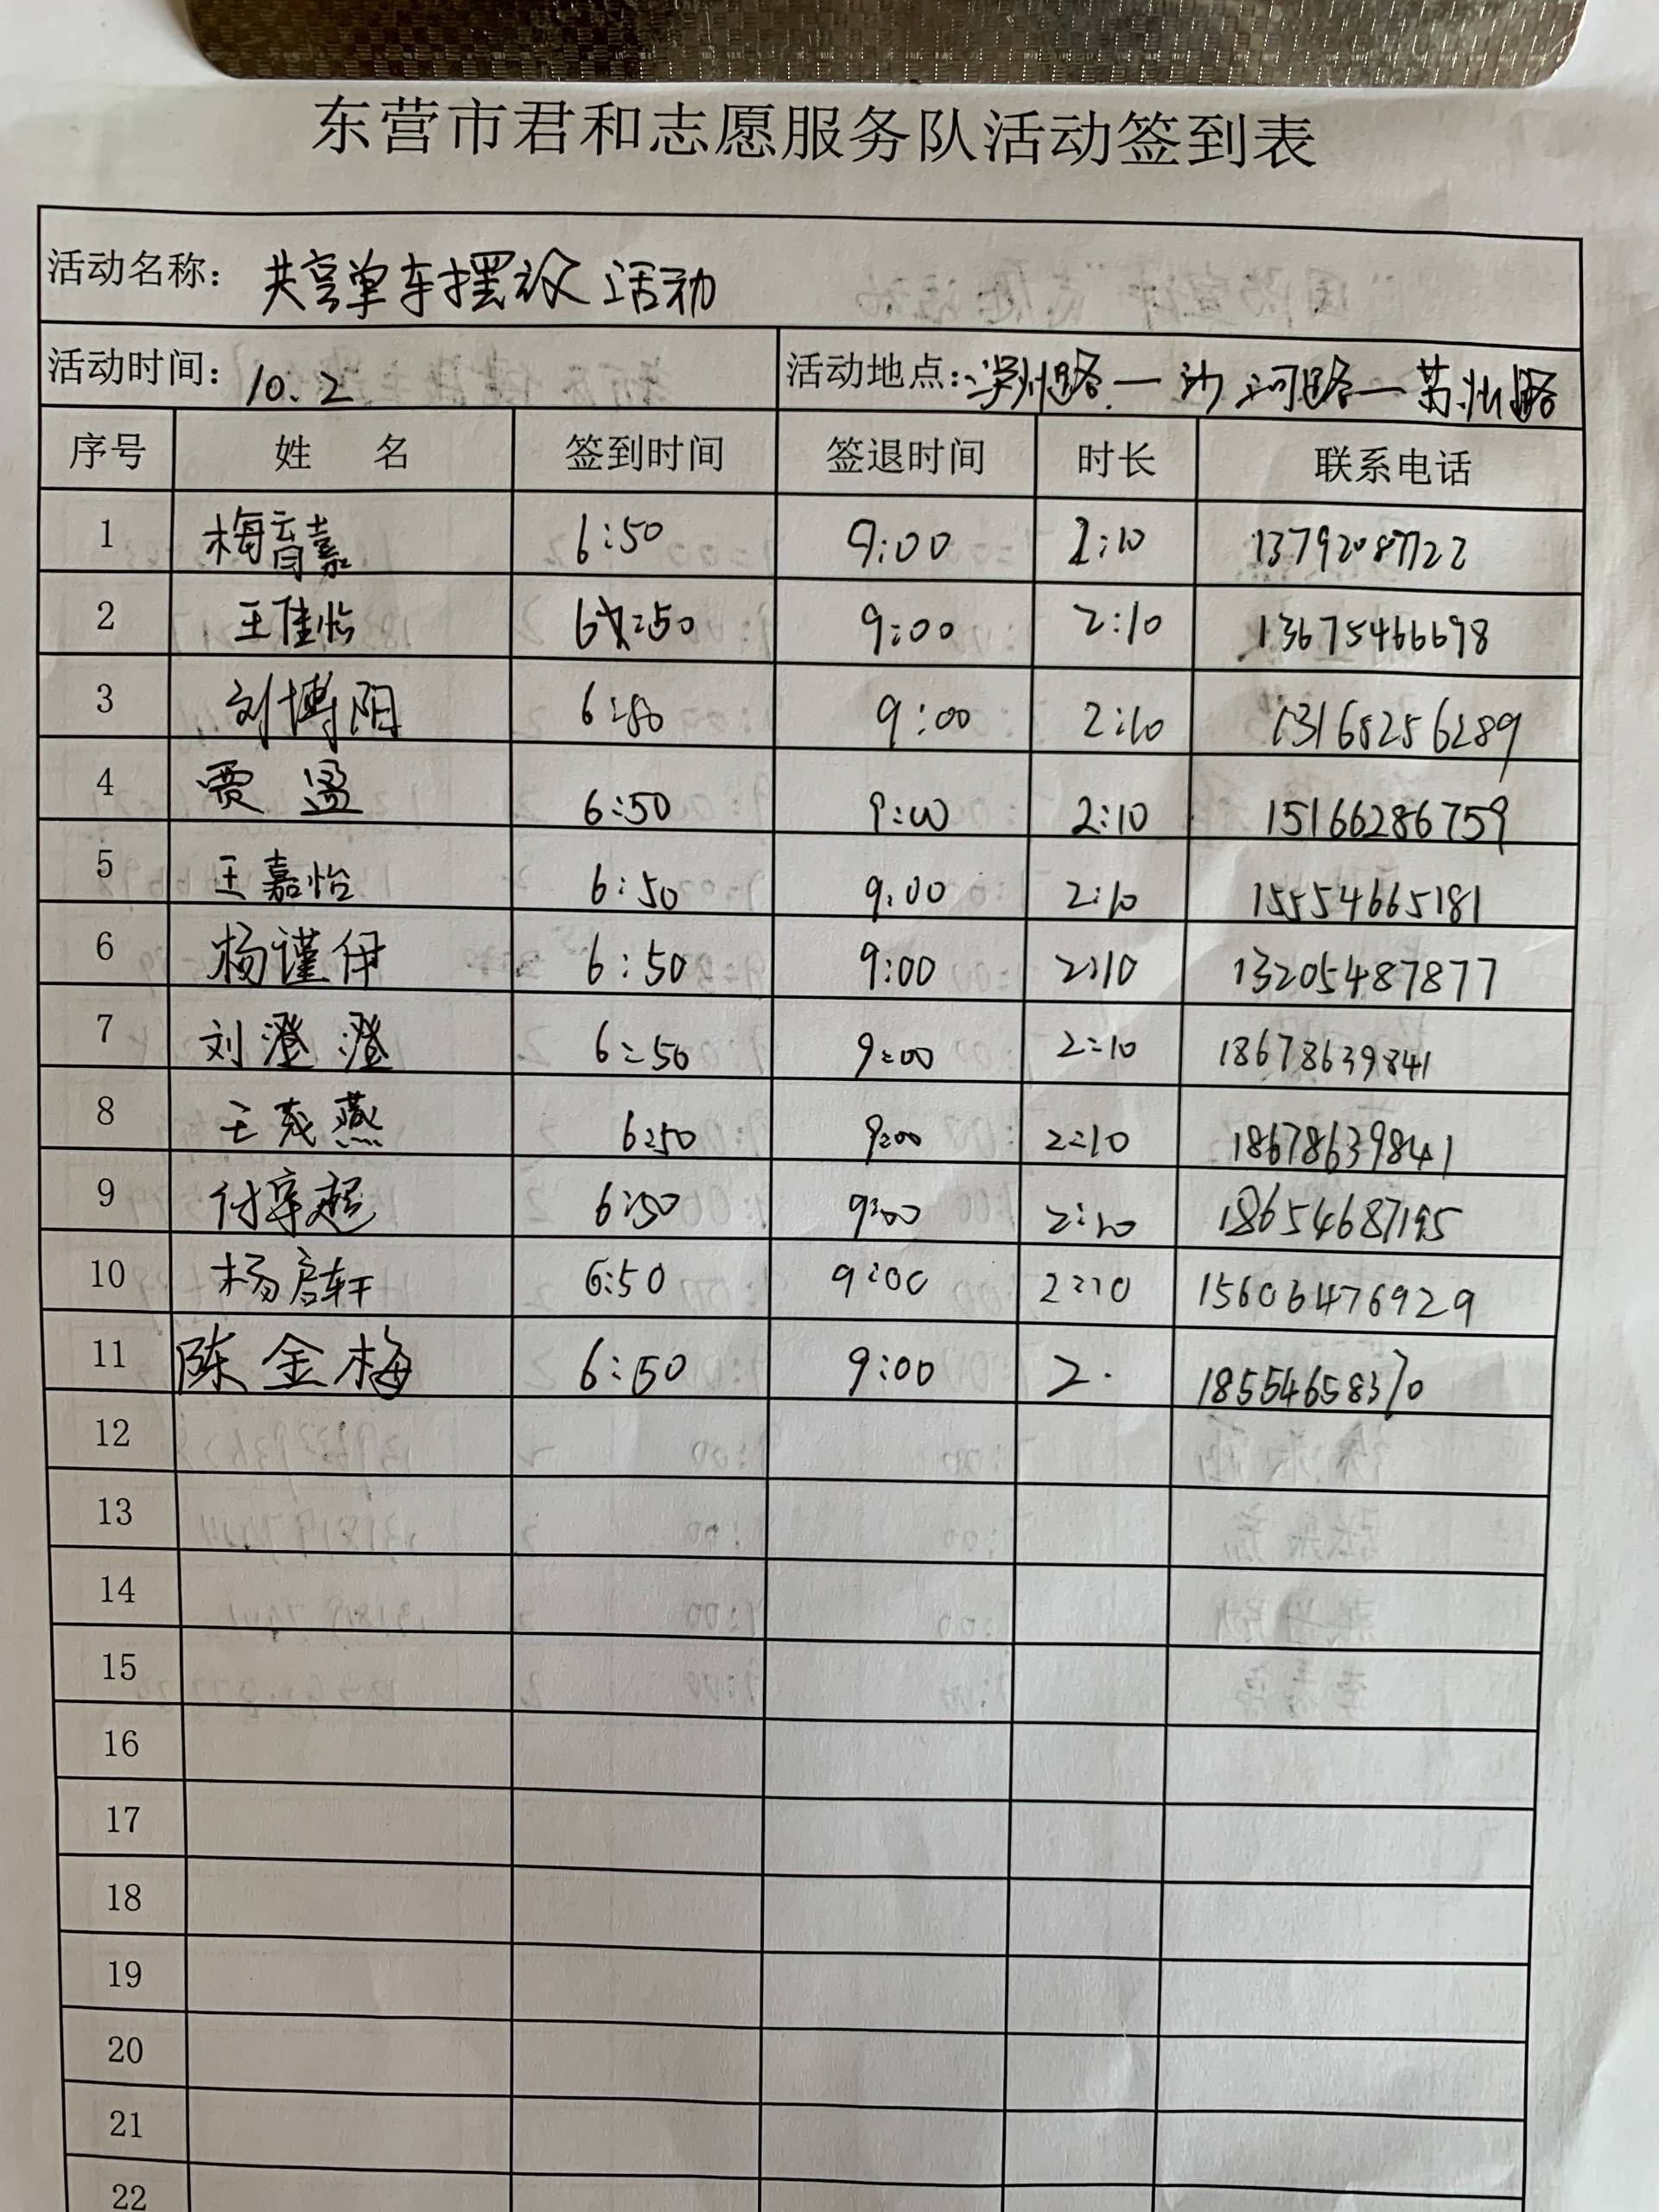 东营市君和志愿服务队活动签到表
活动名称：共享单车摆放活动
活动时间：10.2 活动地点：路—沙河路—苏州路
序号 姓名 签到时间 签退时间 时长 联系电话
1 梅育嘉 6:50 9:00 2:10 13792087722
2 王佳怡 6:50 9:00 2:10 13675466698
3 刘博阳 6:50 9:00 2:10 13165256289
4 贾盈 6:50 9:00 2:10 15166286759
5 王嘉怡 6:50 9:00 2:10 15554665181
6 杨谨伊 6:50 9:00 2:10 13205487877
7 刘澄澄 6:50 9:00 2:10 18678639841
8 王茂燕 6:50 9:00 2:10 18678639841
9 付宇超 6:50 9:00 2:10 18654687195
10 杨启轩 6:50 9:00 2:10 15606476929
11 陈金梅 6:50 9:00 2. 18554658370
12
13
14
15
16
17
18
19
20
21
22